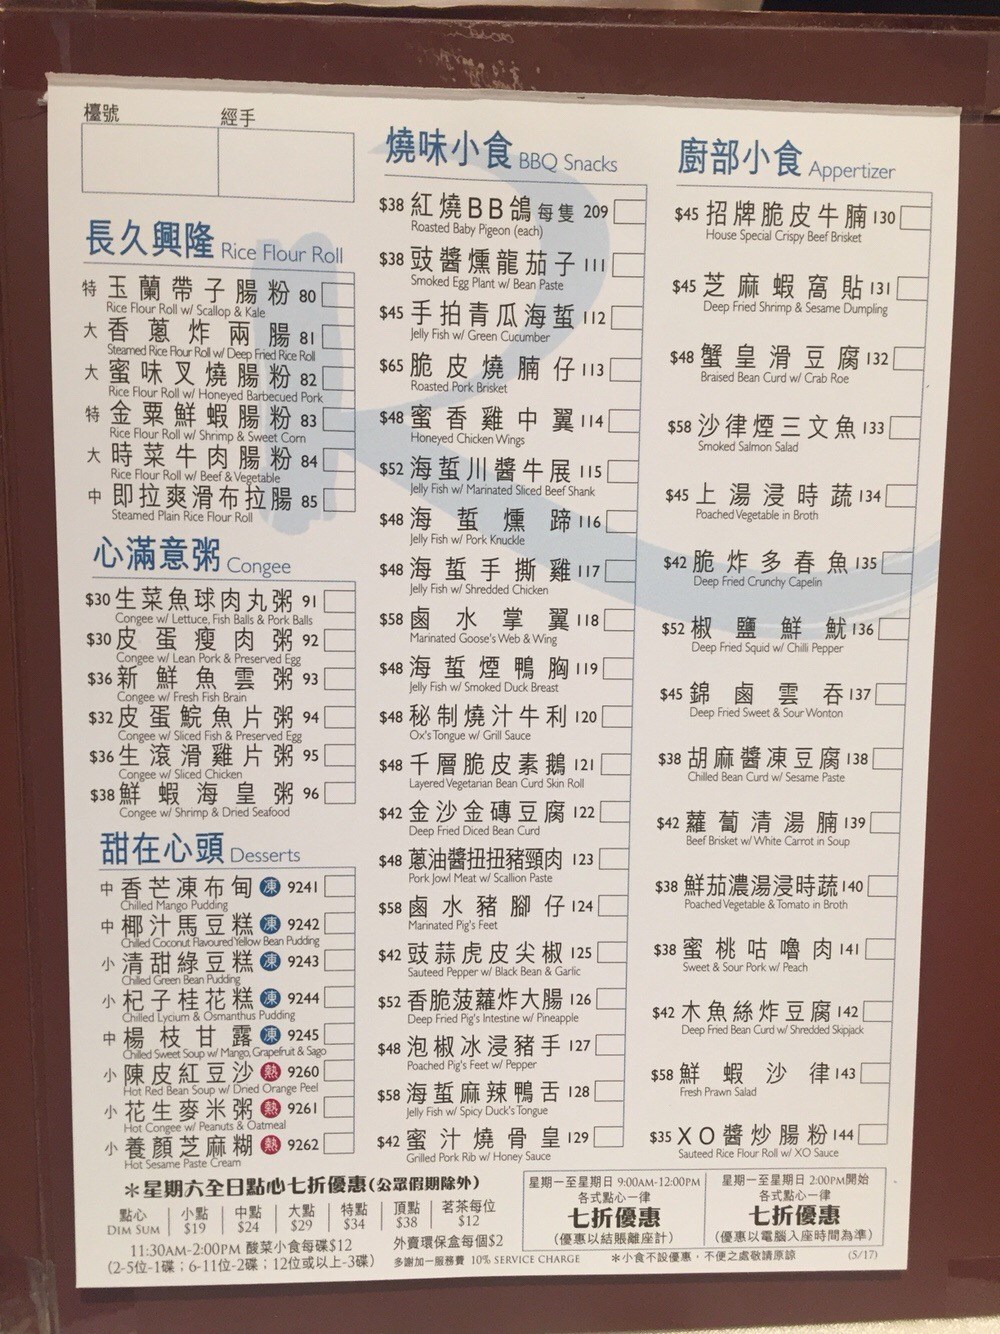 檯號 經手
長久興隆 Rice Flour Roll
特 玉蘭帶子腸粉 80
Rice Flour Roll w/ Scallop & Kale
大 香蔥炸兩腸 81
Steamed Rice Flour Roll w/ Deep Fried Rice Roll
大 蜜味叉燒腸粉 82
Rice Flour Roll w/ Honeyed Barbecued Pork
特 金粟鮮蝦腸粉 83
Rice Flour Roll w/ Shrimp & Sweet Corn
大 時菜牛肉腸粉 84
Rice Flour Roll w/ Beef & Vegetable
中 即拉爽滑布拉腸 85
Steamed Plain Rice Flour Roll
心滿意粥 Congee
$30 生菜魚球肉丸粥 91
Congee w/ Lettuce, Fish Balls & Pork Balls
$30 皮蛋瘦肉粥 92
Congee w/ Lean Pork & Preserved Egg
$36 新鮮魚雲粥 93
Congee w/ Fresh Fish Brain
$32 皮蛋鯇魚片粥 94
Congee w/ Sliced Fish & Preserved Egg
$36 生滾滑雞片粥 95
Congee w/ Sliced Chicken
$38 鮮蝦海皇粥 96
Congee w/ Shrimp & Dried Seafood
甜在心頭 Desserts
中 香芒凍布甸 凍 9241
Chilled Mango Pudding
中 椰汁馬豆糕 凍 9242
Chilled Coconut Flavoured Yellow Bean Pudding
小 清甜綠豆糕 凍 9243
Chilled Green Bean Pudding
小 杞子桂花糕 凍 9244
Chilled Lycium & Osmanthus Pudding
中 楊枝甘露 凍 9245
Chilled Sweet Soup w/ Mango, Grapefruit & Sago
小 陳皮紅豆沙 熱 9260
Hot Red Bean Soup w/ Dried Orange Peel
小 花生麥米粥 熱 9261
Hot Congee w/ Peanuts & Oatmeal
小 養顏芝麻糊 熱 9262
Hot Sesame Paste Cream
燒味小食 BBQ Snacks
$38 紅燒BB鴿 每隻 209
Roasted Baby Pigeon (each)
$38 豉醬燻龍茄子 111
Smoked Egg Plant w/ Bean Paste
$45 手拍青瓜海蜇 112
Jelly Fish w/ Green Cucumber
$65 脆皮燒腩仔 113
Roasted Pork Brisket
$48 蜜香雞中翼 114
Honeyed Chicken Wings
$52 海蜇川醬牛展 115
Jelly Fish w/ Marinated Sliced Beef Shank
$48 海蜇燻蹄 116
Jelly Fish w/ Pork Knuckle
$48 海蜇手撕雞 117
Jelly Fish w/ Shredded Chicken
$58 鹵水掌翼 118
Marinated Goose's Web & Wing
$48 海蜇煙鴨胸 119
Jelly Fish w/ Smoked Duck Breast
$48 秘制燒汁牛利 120
Ox's Tongue w/ Grill Sauce
$48 千層脆皮素鵝 121
Layered Vegetarian Bean Curd Skin Roll
$42 金沙金磚豆腐 122
Deep Fried Diced Bean Curd
$48 蔥油醬扭扭豬頸肉 123
Pork Jowl Meat w/ Scallion Paste
$58 鹵水豬腳仔 124
Marinated Pig's Feet
$42 豉蒜虎皮尖椒 125
Sauteed Pepper w/ Black Bean & Garlic
$52 香脆菠蘿炸大腸 126
Deep Fried Pig's Intestine w/ Pineapple
$48 泡椒冰浸豬手 127
Poached Pig's Feet w/ Pepper
$58 海蜇麻辣鴨舌 128
Jelly Fish w/ Spicy Duck's Tongue
$42 蜜汁燒骨皇 129
Grilled Pork Rib w/ Honey Sauce
廚部小食 Appertizer
$45 招牌脆皮牛腩 130
House Special Crispy Beef Brisket
$45 芝麻蝦窩貼 131
Deep Fried Shrimp & Sesame Dumpling
$48 蟹皇滑豆腐 132
Braised Bean Curd w/ Crab Roe
$58 沙律煙三文魚 133
Smoked Salmon Salad
$45 上湯浸時蔬 134
Poached Vegetable in Broth
$42 脆炸多春魚 135
Deep Fried Crunchy Capelin
$52 椒鹽鮮魷 136
Deep Fried Squid w/ Chilli Pepper
$45 錦鹵雲吞 137
Deep Fried Sweet & Sour Wonton
$38 胡麻醬凍豆腐 138
Chilled Bean Curd w/ Sesame Paste
$42 蘿蔔清湯腩 139
Beef Brisket w/ White Carrot in Soup
$38 鮮茄濃湯浸時蔬 140
Poached Vegetable & Tomato in Broth
$38 蜜桃咕嚕肉 141
Sweet & Sour Pork w/ Peach
$42 木魚絲炸豆腐 142
Deep Fried Bean Curd w/ Shredded Skipjack
$58 鮮蝦沙律 143
Fresh Prawn Salad
$35 XO醬炒腸粉 144
Sauteed Rice Flour Roll w/ XO Sauce
＊星期六全日點心七折優惠(公眾假期除外)
點心 小點 中點 大點 特點 頂點 茗茶每位
DIM SUM $19 $24 $29 $34 $38 $12
11:30AM-2:00PM 酸菜小食每碟$12 外賣環保盒每個$2
(2-5位-1碟；6-11位-2碟；12位或以上-3碟) 多謝加一服務費 10% SERVICE CHARGE
星期一至星期日 9:00AM-12:00PM
各式點心一律
七折優惠
(優惠以結賬離座計)
星期一至星期日 2:00PM開始
各式點心一律
七折優惠
(優惠以電腦入座時間為準)
＊小食不設優惠，不便之處敬請原諒 (5/17)